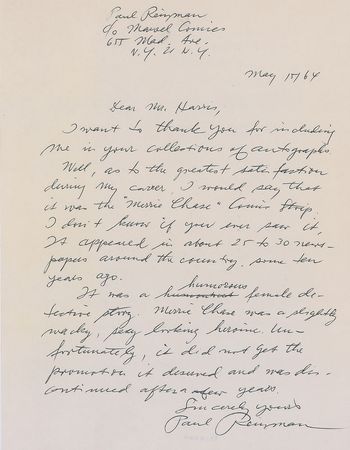 Paul Reinman
c/o Marvel Comics
655 Mad. Ave.
N.Y. 21 N.Y.
May 15/64
Dear Mr. Harris,
I want to thank you for including
me in your collections of autographs.
Well, as to the greatest satisfaction
during my career, I would say that
it was the "Merrie Chase" Comic Strip.
I don't know if you ever saw it,
It appeared in about 25 to 30 news-
papers around the country, some ten
years ago.
humorous
It was a female de-
tective story. Merrie Chase was a slightly
wacky, sexy looking heroine. Un-
fortunately, it did not get the
promotion it deserved and was dis-
continued after a few years.
Sincerely yours
Paul Reinman